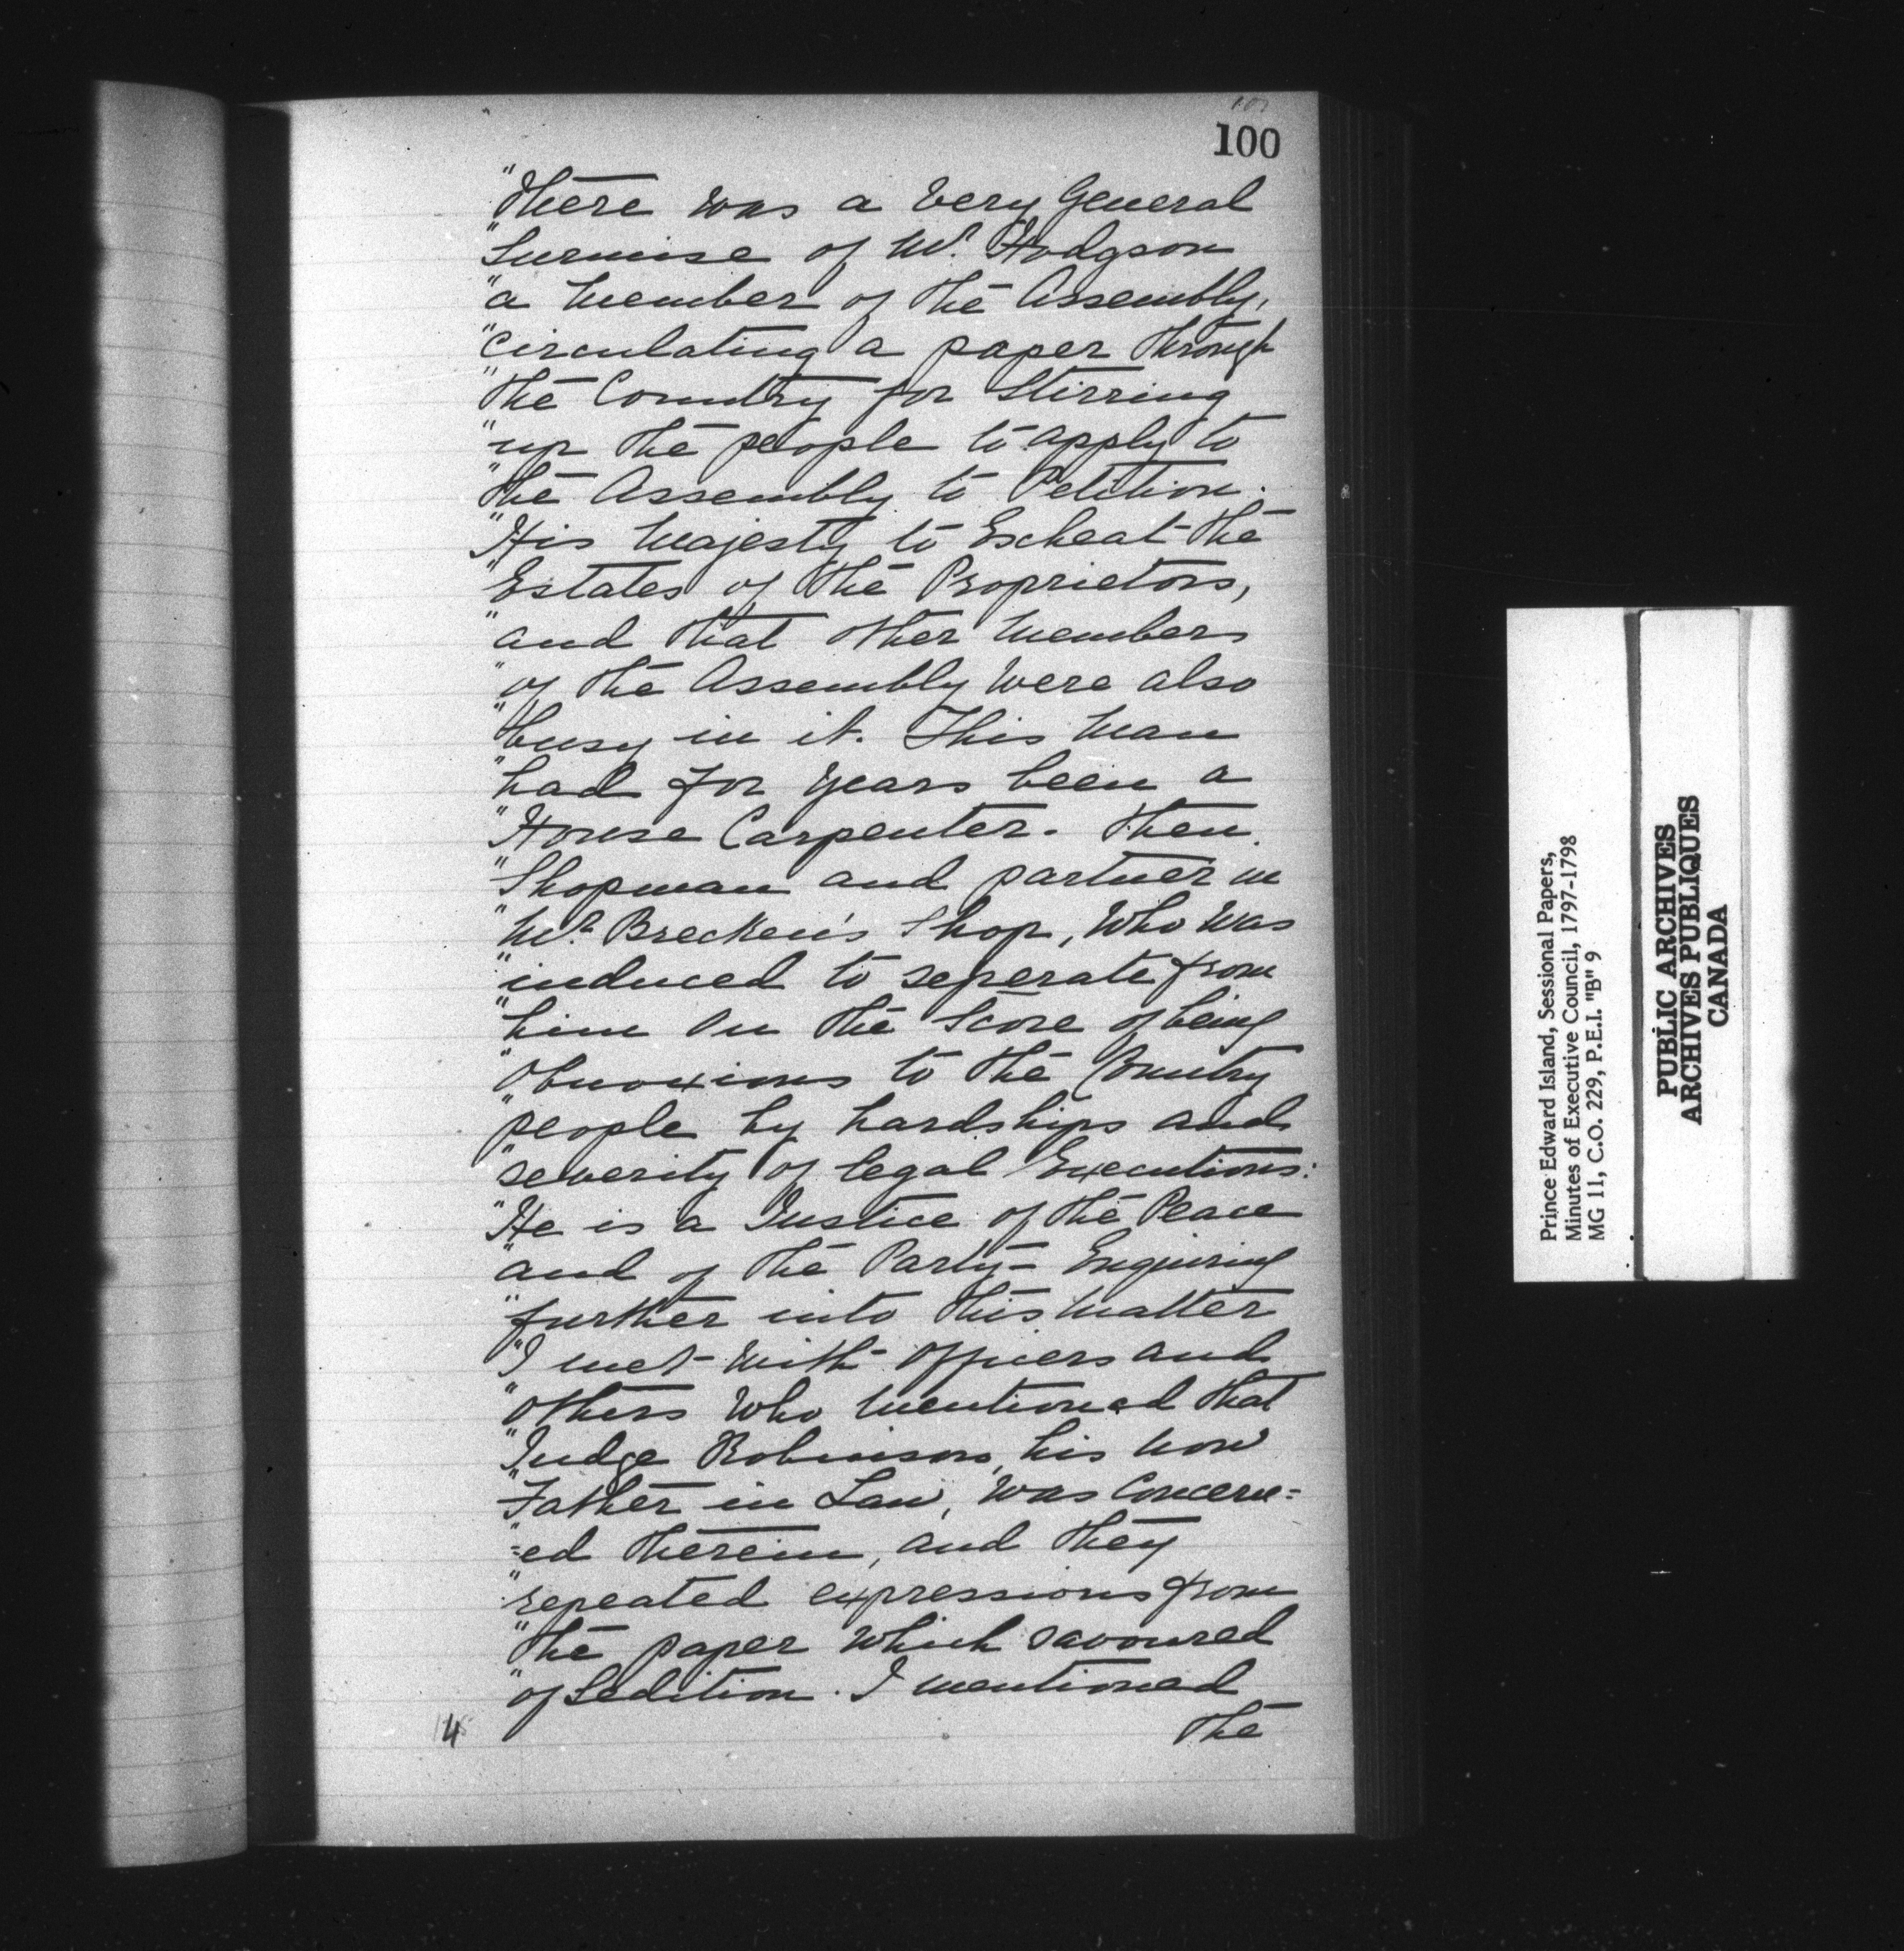 100
"There was a very General
"Surmise of Mr. Hodgson
"a Member of the Assembly,
"circulating a paper through
"the Country for Stirring
"up the people to apply to
"the Assembly to Petition.
"His Majesty to Escheat the
"Estates of the Proprietors,
"and that other Members
"of the Assembly were also
"busy in it. This Man
"had for years been a
"House Carpenter. Then
"Shopman and partner in
"Mr. Brecken's Shop, Who Was
"induced to seperate from
"him on the Score of being
"Obnoxious to the Country
"people by hardships and
"severity of legal Executions:
"He is a Justice of the Peace
"and of the Party - Enquiring
"further into this Matter
"I met with Officers and
"Others Who Mentioned that
"Judge Robinson, his now
"Father in Law, was Concern=
"=ed therein, and they
"repeated expressions from
"the paper which savoured
"of Sedition. I mentioned
the
4
Prince Edward Island, Sessional Papers,
Minutes of Executive Council, 1797-1798
MG 11, C.O. 229, P.E.I. "B" 9
PUBLIC ARCHIVES
ARCHIVES PUBLIQUES
CANADA